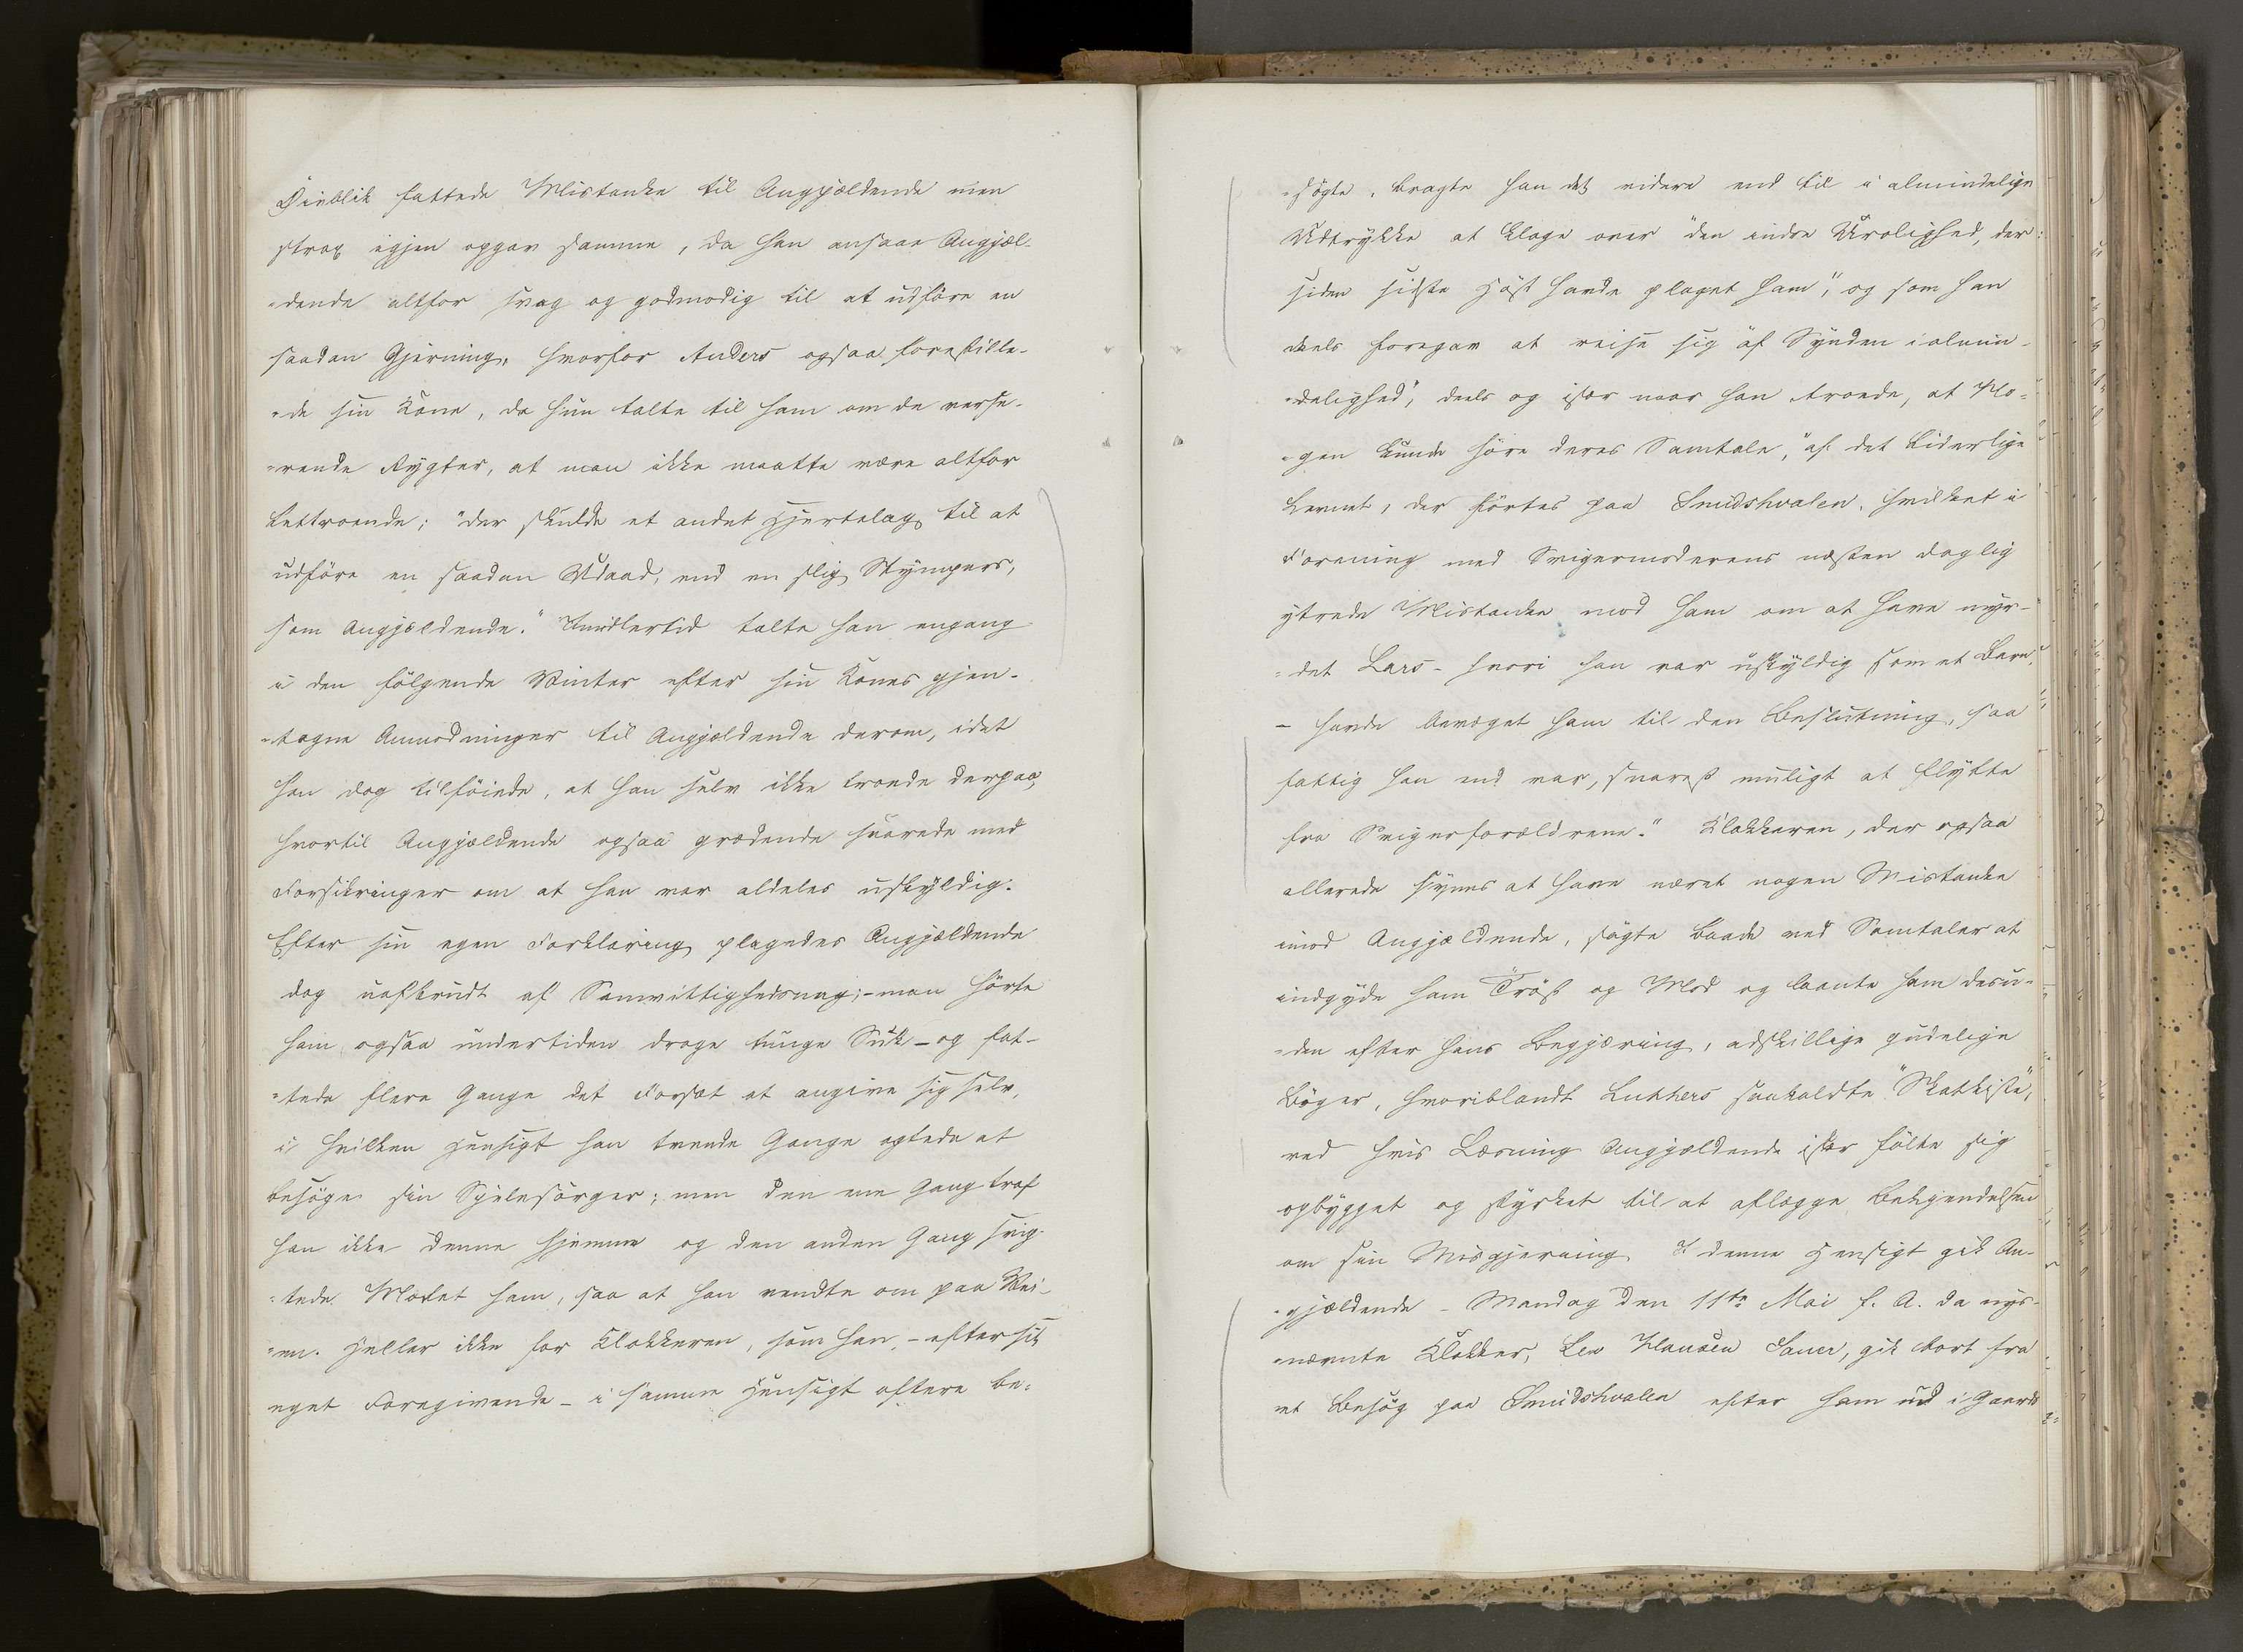 Öieblik fattede Mistanke til Angjældende men
strax igjen opgav samme, da han ansaae Angjæl-
-dende altfor svag og godmodig til at udföre en
saadan Gjerning, hvorfor Anders ogsaa forestille-
-de sin Kone, da hun talte til ham om de verse-
-rende Rygter, at man ikke maatte være altfor
lettroende; "der skulde et andet Hjertelag til at
udföre en saadan Udaad, end en slig Stympers,
som Angjældende." Imidlertid talte han engang
i den fölgende Vinter efter sin Kones gjen-
-tagne Anmodninger til Angjældende derom, idet
han dog tilföiede, at han selv ikke troede derpaa,
hvortil Angjældende ogsaa grædende svarede med
Forsikringer om at han var aldeles uskyldig.
Efter sin egen Forklaring plagedes Angjældende
dog uafbrudt af Samvittighedsnag; - man hörte
ham ogsaa undertiden drage tunge Suk - og fat-
-tede flere Gange det Forsæt at angive sig selv,
i hvilken Hensigt han tvende Gange agtede at
besöge sin Sjelesörger; men den ene Gang traf
han ikke denne hjemme og den anden Gang svig-
-tede Modet ham, saa at han vendte om paa Vei-
-en. Heller ikke for Klokkeren, som han, - efter sit
eget Foregivende - i samme Hensigt oftere be-
-sögte, bragte han det videre end til i almindelige
Udtrykke at klage over "den indre Urolighed, der
siden sidste Höst havde plaget ham", og som han
deels foregav at reise sig "af Synden i almin-
-delighed", deels og især naar han troede, at No-
-gen kunde höre deres Samtale, "af det liderlige
Levnet, der förtes paa Smidshvalen, hvilket i
Forening med Svigermoderens næsten daglig
ytrede Mistanke mod ham om at have myr-
-det Lars - hvori han var uskyldig som et Barn,
- havde bevæget ham til den Beslutning, saa
fattig han end var, snarest muligt at flytte
fra Svigerforældrene." Klokkeren, der ogsaa
allerede synes at have næret nogen Mistanke
imod Angjældende, sögte baade ved Samtaler at
indgyde ham Tröst og Mod og laante ham desu-
-den efter hans Begjæring, adskillige gudelige
Böger, hvoriblandt Luthers saakaldte "Skatkiste",
ved hvis Læsning Angjældende især fölte sig
opbygget og styrket til at aflægge Bekjendelsen
om sin Misgjerning. I denne Hensigt gik An-
-gjældende - Mandag den 11te Mai f. A. da nys-
-nævnte Klokker, Hansen Sauer, gik bort fra
et Besög paa Smidshvalen efter ham ud i Gaards